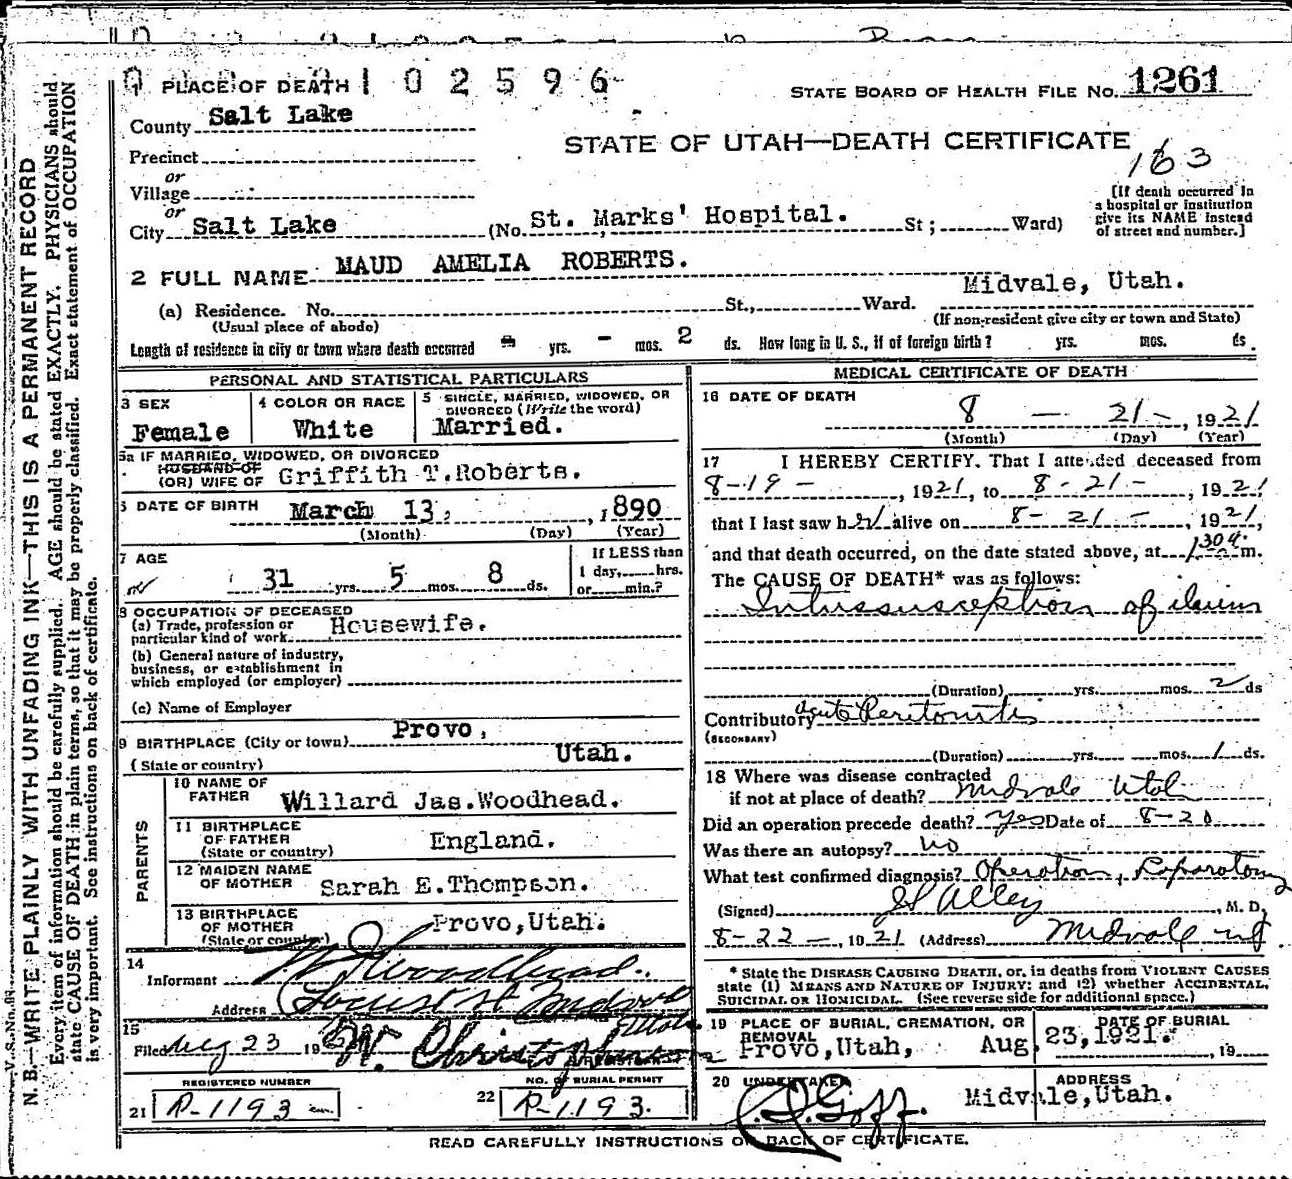 1 PLACE OF DEATH 102596
STATE BOARD OF HEALTH FILE NO. 1261
County Salt Lake
STATE OF UTAH—DEATH CERTIFICATE
163
Precinct
or
Village
or
City Salt Lake (No. St. Marks' Hospital. St; Ward)
[If death occurred in
a hospital or institution
give its NAME instead
of street and number.]
2 FULL NAME MAUD AMELIA ROBERTS.
(a) Residence. No. St., Ward. Midvale, Utah.
(Usual place of abode) (If non-resident give city or town and State)
Length of residence in city or town where death occurred - yrs. - mos. 2 ds. How long in U. S., if of foreign birth? yrs. mos. ds.
PERSONAL AND STATISTICAL PARTICULARS
3 SEX
Female
4 COLOR OR RACE
White
5 SINGLE, MARRIED, WIDOWED, OR
DIVORCED (Write the word)
Married.
5a IF MARRIED, WIDOWED, OR DIVORCED
HUSBAND OF
(OR) WIFE OF Griffith T.Roberts.
6 DATE OF BIRTH March 13, 1890
(Month) (Day) (Year)
7 AGE
31 yrs. 5 mos. 8 ds.
If LESS than
1 day, hrs.
or min.?
8 OCCUPATION OF DECEASED
(a) Trade, profession or
particular kind of work Housewife.
(b) General nature of industry,
business, or establishment in
which employed (or employer)
(c) Name of Employer
9 BIRTHPLACE (City or town) Provo,
(State or country) Utah.
PARENTS
10 NAME OF
FATHER Willard Jas.Woodhead.
11 BIRTHPLACE
OF FATHER
(State or country) England.
12 MAIDEN NAME
OF MOTHER Sarah E.Thompson.
13 BIRTHPLACE
OF MOTHER
(State or country) Provo,Utah.
14
Informant Woodhead.
Address Locust St Midvale
Utah
15
Filed Aug 23 19 W. Christopherson
REGISTRAR
REGISTERED NUMBER
21 R-1193
NO. OF BURIAL PERMIT
22 R-1193.
MEDICAL CERTIFICATE OF DEATH
16 DATE OF DEATH
8 - 21 -, 1921
(Month) (Day) (Year)
17 I HEREBY CERTIFY, That I attended deceased from
8-19 -, 1921, to 8-21 -, 1921
that I last saw her alive on 8-21 -, 1921,
and that death occurred, on the date stated above, at 130 a m.
The CAUSE OF DEATH* was as follows:
Intussusception of ileum
(Duration) yrs. mos. 2 ds
Contributory acute Peritonitis
(SECONDARY)
(Duration) yrs. mos. 1 ds.
18 Where was disease contracted
if not at place of death? Midvale Utah
Did an operation precede death? Yes Date of 8-20
Was there an autopsy? no
What test confirmed diagnosis? Operation, Laparotomy
(Signed) Alley, M. D.
8-22 -, 1921 (Address) Midvale ut.
* State the DISEASE CAUSING DEATH, or, in deaths from VIOLENT CAUSES
state (1) MEANS AND NATURE OF INJURY; and (2) whether ACCIDENTAL,
SUICIDAL OR HOMICIDAL. (See reverse side for additional space.)
19 PLACE OF BURIAL, CREMATION, OR
REMOVAL
Provo,Utah,
DATE OF BURIAL
Aug.23,1921. , 19
20 UNDERTAKER
Goff.
ADDRESS
Midvale,Utah.
READ CAREFULLY INSTRUCTIONS ON BACK OF CERTIFICATE.
V. S. No.
N. B.—WRITE PLAINLY WITH UNFADING INK—THIS IS A PERMANENT RECORD
Every item of information should be carefully supplied. AGE should be stated EXACTLY. PHYSICIANS should
state CAUSE OF DEATH in plain terms, so that it may be properly classified. Exact statement of OCCUPATION
is very important. See instructions on back of certificate.